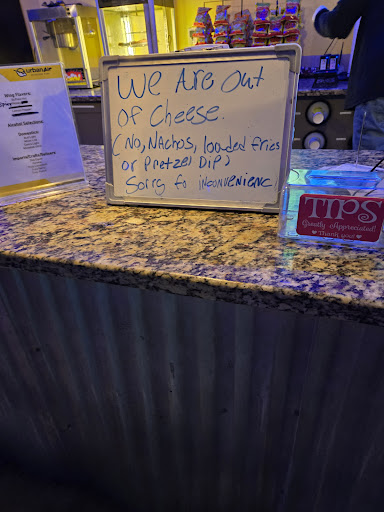 urbanair
Wing Flavors:
Alcohol Selections:
We Are out
of Cheese.
(No, Nachos, loaded fries
or Pretzel Dip)
Sorry fo inconvenienc
TIPS
Greatly Appreciated!
Thank you!